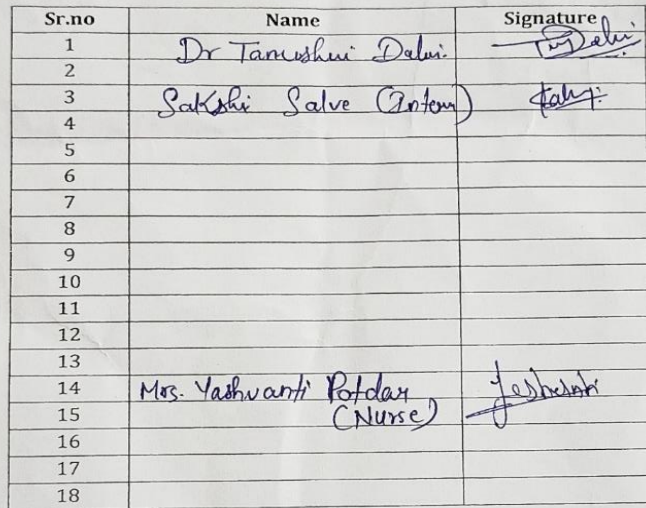 Sr.no Name Signature
1 Dr Tanushri Dalvi.
2
3 Sakshi Salve (Intern)
4
5
6
7
8
9
10
11
12
13
14 Mrs. Yashvanti Potdar
15 (Nurse)
16
17
18